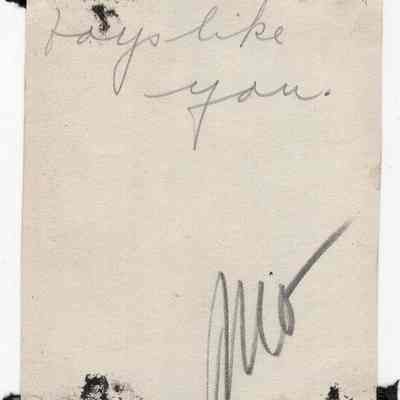 boys like
you.